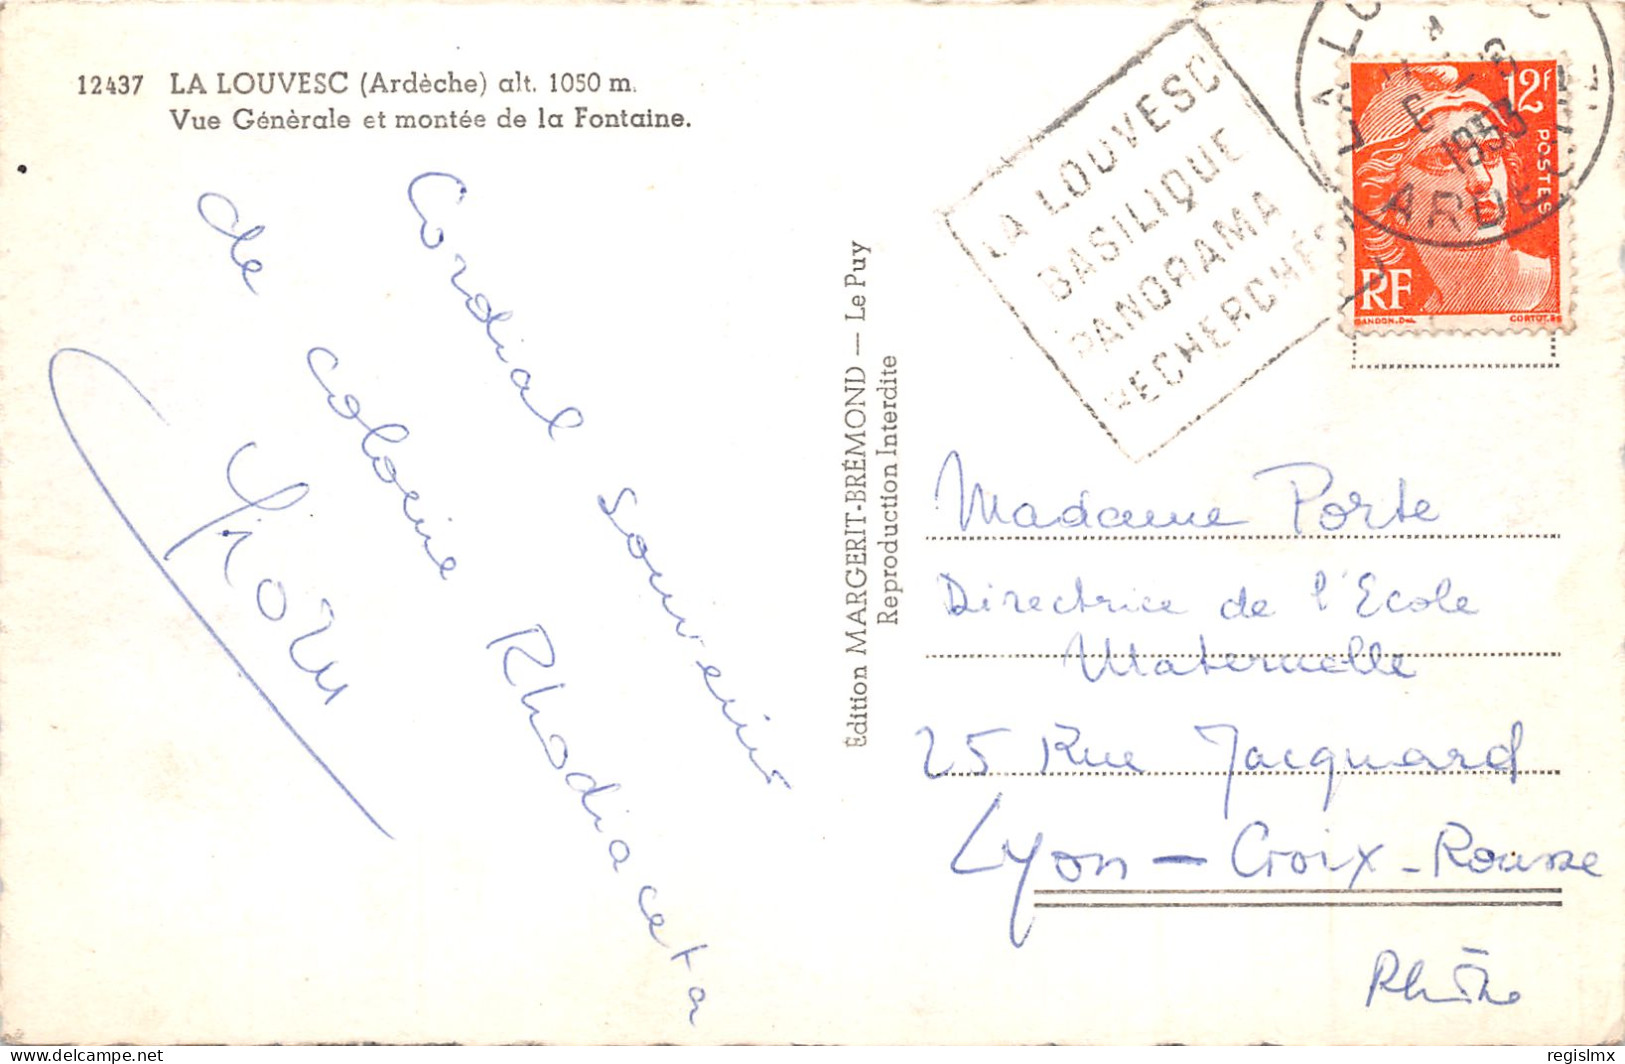 12437 LA LOUVESC (Ardèche) alt. 1050 m.
Vue Génèrale et montée de la Fontaine.
Cordial souvenir
de colonie Rhodiaceta
Edition MARGERIT-BRÉMOND — Le Puy
Reproduction Interdite
LA LOUVESC
BASILIQUE
PANORAMA
RECHERCHÉS
1953
ARDECHE
12f
POSTES
RF
GANDON.Del.
CORTOT.SC
Madame Porte
Directrice de l'Ecole
Maternelle
25 Rue Jacquard
Lyon - Croix-Rousse
Rhône
delcampe.net
regislmx